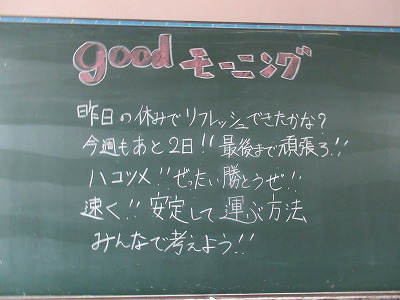 good モーニング
昨日の休みでリフレッシュできたかな?
今週もあと2日!! 最後まで頑張ろ!!
ハコツメ!! ぜったい勝とうぜ!!
速く!! 安定して運ぶ方法
みんなで考えよう!!